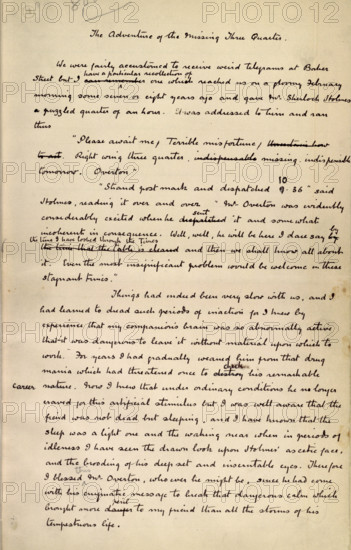 The Adventure of the Missing Three Quarter.
We were fairly accustomed to receive weird telegrams at Baker
Street but I have a particular recollection of one which reached us on a gloomy February
morning some seven or eight years ago and gave Mr Sherlock Holmes
a puzzled quarter of an hour. It was addressed to him and ran
thus
"Please await me, Terrible misfortune, Uncertain how
to act. Right wing three quarter, indispensable missing, indispensible
tomorrow. Overton"
"Strand post mark and despatched 10 9.36" said
Holmes, reading it over and over "Mr Overton was evidently
considerably excited when he despatched sent it and somewhat
incoherent in consequence. Well, well, he will be here I dare say by
the time I have looked through the Times
the time that the table is cleared and then we shall know all about
it. Even the most insignificant problem would be welcome in these
stagnant times."
Things had indeed been very slow with us, and I
had learned to dead such periods of inaction for I knew by
experience that my companion's brain was so abnormally active
that it was dangerous to leave it without material upon which to
work. For years I had gradually weaned him from that drug
mania which had threatened once to destroy check his remarkable
career nature. Now I knew that under ordinary conditions he no longer
craved for this artificial stimulus but I was well aware that the
fiend was not dead but sleeping, and I have known that the
sleep was a light one and the waking near when in periods of
idleness I have seen the drawn look upon Holmes' ascetic face,
and the brooding of his deep set and inscrutable eyes. Therefore
I blessed Mr Overton, whoever he might be, since he had come
with his enigmatic message to break that dangerous calm which
brought more danger peril to my friend than all the storms of his
tempestuous life.
PHOTO12